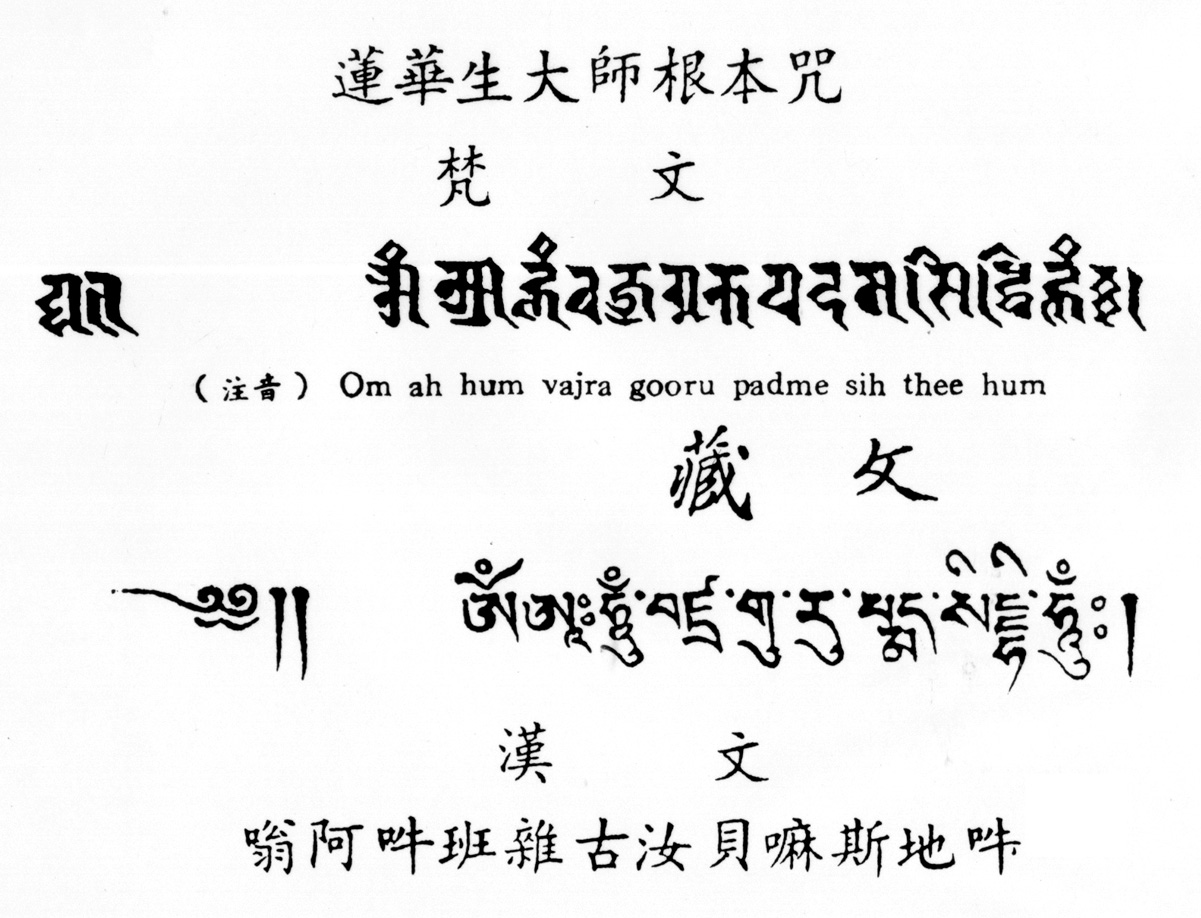 蓮華生大師根本咒
梵文
(注音) Om ah hum vajra gooru padme sih thee hum
藏文
༄༅།། ཨོཾ་ཨཱཿཧཱུྃ་བཛྲ་གུ་རུ་པདྨ་སིདྡྷི་ཧཱུྃཿ །
漢文
嗡阿吽班雜古汝貝嘛斯地吽